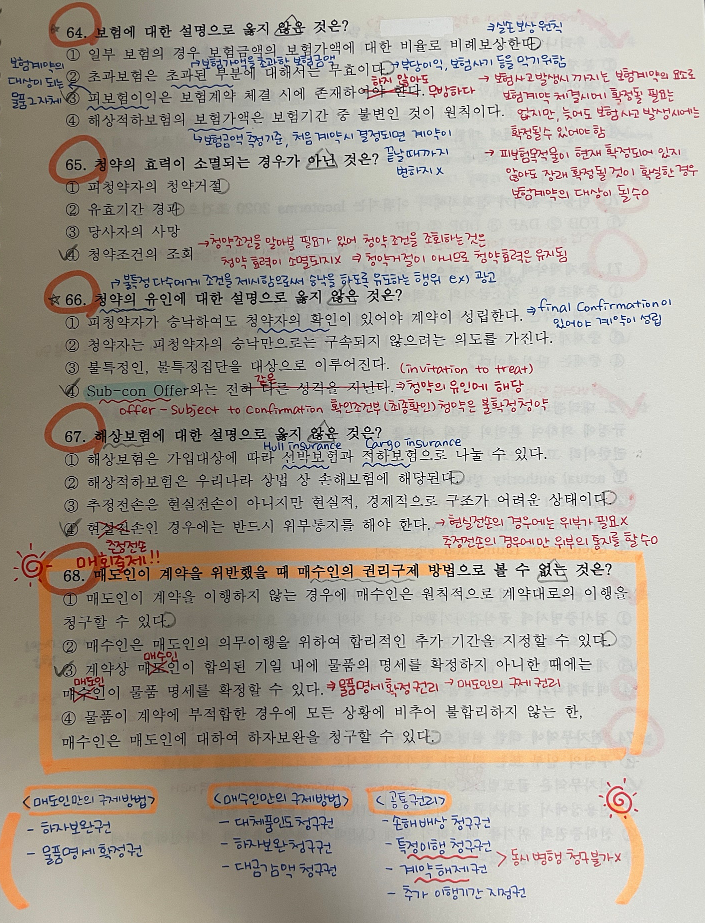 64. 보험에 대한 설명으로 옳지 않은 것은?
→실손보상원칙
① 일부 보험의 경우 보험금액의 보험가액에 대한 비율로 비례보상한다.
→보험가액을 초과한 보험금액
② 초과보험은 초과된 부분에 대해서는 무효이다. →보상이익, 보험사기 등을 악기위함
보험계약의
대상이 되는
물품 그 자체
하지 않아도
③ 피보험이익은 보험계약 체결 시에 존재하여야 한다. 무방하다
→ 보험사고발생시까지는 보험계약의 요소로
보험계약 체결시에 확정될 필요는
없지만, 늦어도 보험사고발생시에는
확정될수 있어야 함
④ 해상적하보험의 보험가액은 보험기간 중 불변인 것이 원칙이다.
↳보험금액 측정기준, 처음 계약시 결정되면 계약이
끝날때까지
변하지 X
→ 피보험목적물이 현재 확정되어 있지
않아도 장래 확정될 것이 확실한 경우
보험계약의 대상이 될수O
65. 청약의 효력이 소멸되는 경우가 아닌 것은?
① 피청약자의 청약거절
② 유효기간 경과
③ 당사자의 사망
④ 청약조건의 조회
→청약조건을 알아볼 필요가 있어 청약 조건을 조회하는 것은
청약 효력이 소멸되지X → 청약거절이 아니므로 청약효력은 유지됨
→ 불특정 다수에게 조건을 제시함으로써 승낙을 하도록 유도하는 행위 ex) 광고
☆ 66. 청약의 유인에 대한 설명으로 옳지 않은 것은?
① 피청약자가 승낙하여도 청약자의 확인이 있어야 계약이 성립한다.
→final Confirmation이
있어야 계약이 성립
② 청약자는 피청약자의 승낙만으로는 구속되지 않으려는 의도를 가진다.
③ 불특정인, 불특정집단을 대상으로 이루어진다. (invitation to treat)
같은
④ Sub-con Offer와는 전혀 다른 성격을 지닌다. →청약의 유인에 해당
offer - Subject to Confirmation 확인조건부(최종확인)청약은 불확정청약
67. 해상보험에 대한 설명으로 옳지 않은 것은?
Hull insurance Cargo insurance
① 해상보험은 가입대상에 따라 선박보험과 적하보험으로 나눌 수 있다.
② 해상적하보험은 우리나라 상법 상 손해보험에 해당된다.
③ 추정전손은 현실전손이 아니지만 현실적, 경제적으로 구조가 어려운 상태이다.
④ 현실전손인 경우에는 반드시 위부통지를 해야 한다. → 현실전손의 경우에는 위부가 필요X
추정전손
추정전손의 경우에만 위부의 통지를 할 수O
매회출제!!
68. 매도인이 계약을 위반했을 때 매수인의 권리구제 방법으로 볼 수 없는 것은?
① 매도인이 계약을 이행하지 않는 경우에 매수인은 원칙적으로 계약대로의 이행을
청구할 수 있다.
② 매수인은 매도인의 의무이행을 위하여 합리적인 추가 기간을 지정할 수 있다.
매수인
③ 계약상 매도인이 합의된 기일 내에 물품의 명세를 확정하지 아니한 때에는
매도인
매수인이 물품 명세를 확정할 수 있다. →물품명세확정권리 → 매도인의 구제권리
④ 물품이 계약에 부적합한 경우에 모든 상황에 비추어 불합리하지 않는 한,
매수인은 매도인에 대하여 하자보완을 청구할 수 있다.
<매도인만의 구제방법>
- 하자보완권
- 물품명세 확정권
<매수인만의 구제방법>
- 대체품인도 청구권
- 하자보완 청구권
- 대금감액 청구권
<공통권리>
- 손해배상 청구권
- 특정이행 청구권
- 계약해제권
> 동시 병행 청구불가X
- 추가 이행기간 지정권